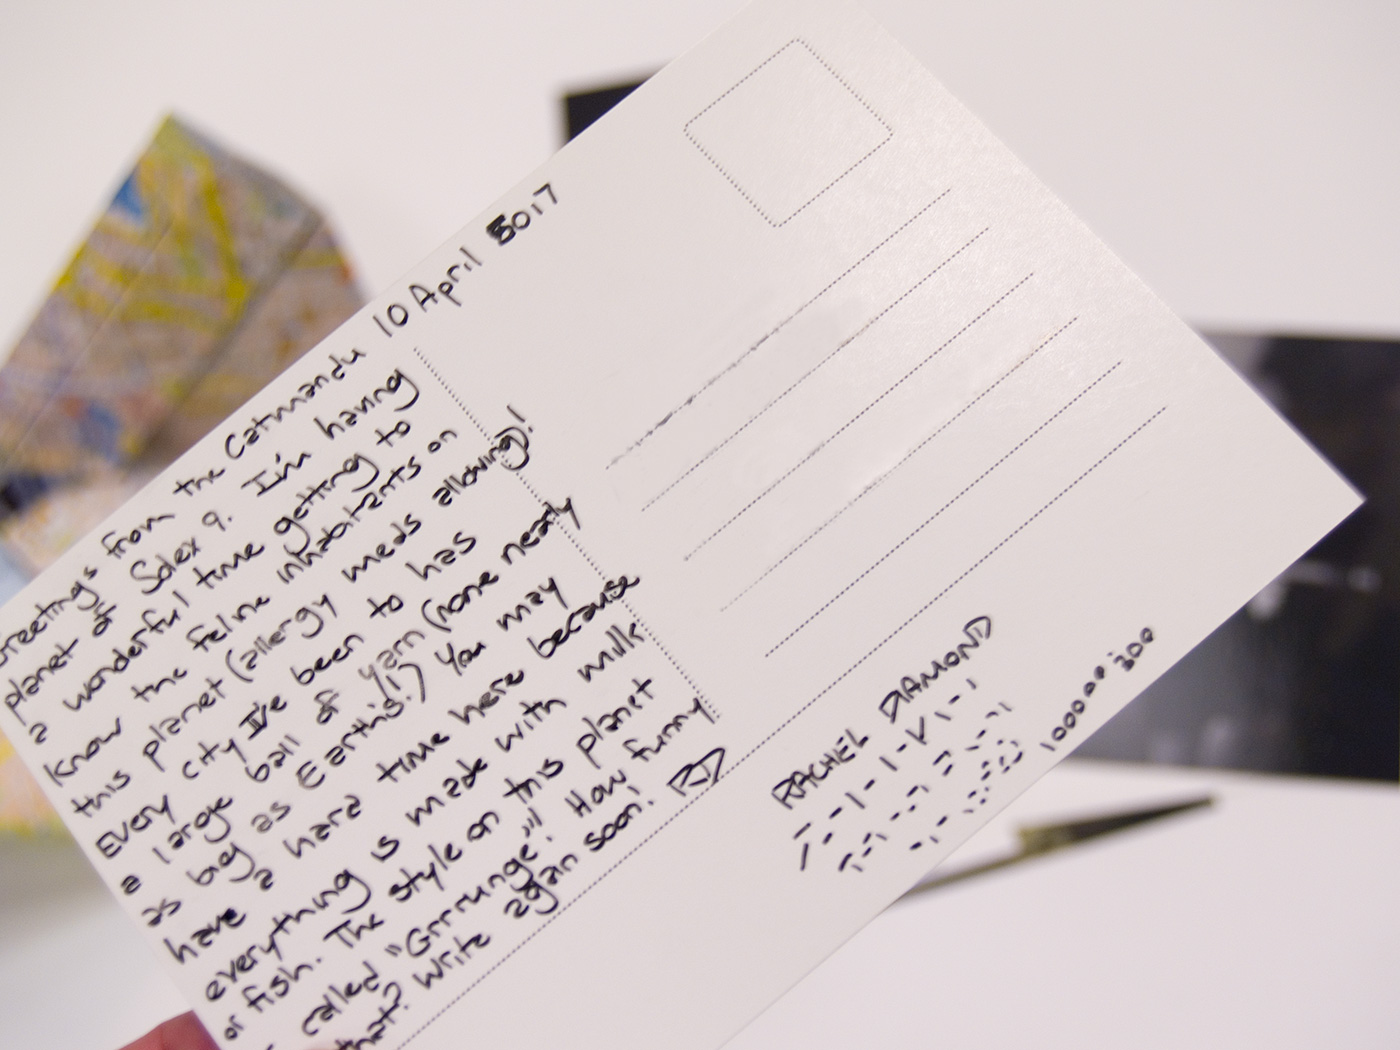 Greetings from the Catmandu 10 April 3017
planet of Solex 9. I'm having
a wonderful time getting to
know the feline inhabitents on
this planet (allergy meds allowing)!
Every city I've been to has
a large ball of yarn (none nearly
as big as Earth's!!) You may
have a hard time here because
everything is made with milk
or fish. The style on this planet
called "Grrrunge"! How funny
that? Write again soon! RD
RACHEL DIAMOND
1000000:300